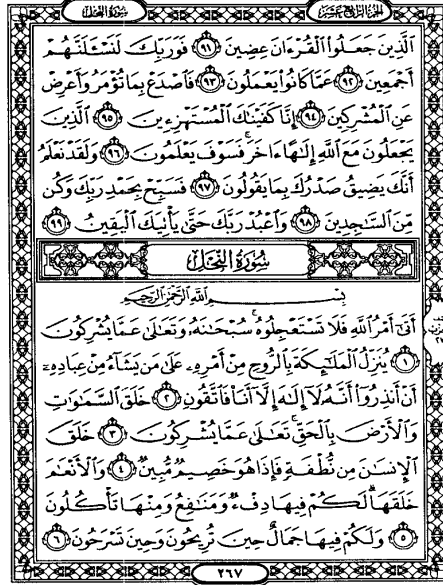 سورة النحل
الجزء الرابع عشر
ٱلَّذِينَ جَعَلُوا۟ ٱلْقُرْءَانَ عِضِينَ ٩١ فَوَرَبِّكَ لَنَسْـَٔلَنَّهُمْ
أَجْمَعِينَ ٩٢ عَمَّا كَانُوا۟ يَعْمَلُونَ ٩٣ فَٱصْدَعْ بِمَا تُؤْمَرُ وَأَعْرِضْ
عَنِ ٱلْمُشْرِكِينَ ٩٤ إِنَّا كَفَيْنَٰكَ ٱلْمُسْتَهْزِءِينَ ٩٥ ٱلَّذِينَ
يَجْعَلُونَ مَعَ ٱللَّهِ إِلَٰهًا ءَاخَرَ ۚ فَسَوْفَ يَعْلَمُونَ ٩٦ وَلَقَدْ نَعْلَمُ
أَنَّكَ يَضِيقُ صَدْرُكَ بِمَا يَقُولُونَ ٩٧ فَسَبِّحْ بِحَمْدِ رَبِّكَ وَكُن
مِّنَ ٱلسَّٰجِدِينَ ٩٨ وَٱعْبُدْ رَبَّكَ حَتَّىٰ يَأْتِيَكَ ٱلْيَقِينُ ٩٩
سُورَةُ النَّحْلِ
بِسْمِ ٱللَّهِ ٱلرَّحْمَٰنِ ٱلرَّحِيمِ
أَتَىٰٓ أَمْرُ ٱللَّهِ فَلَا تَسْتَعْجِلُوهُ ۚ سُبْحَٰنَهُۥ وَتَعَٰلَىٰ عَمَّا يُشْرِكُونَ
١ يُنَزِّلُ ٱلْمَلَٰٓئِكَةَ بِٱلرُّوحِ مِنْ أَمْرِهِۦ عَلَىٰ مَن يَشَآءُ مِنْ عِبَادِهِۦٓ
أَنْ أَنذِرُوٓا۟ أَنَّهُۥ لَآ إِلَٰهَ إِلَّآ أَنَا۠ فَٱتَّقُونِ ٢ خَلَقَ ٱلسَّمَٰوَٰتِ
وَٱلْأَرْضَ بِٱلْحَقِّ ۚ تَعَٰلَىٰ عَمَّا يُشْرِكُونَ ٣ خَلَقَ
ٱلْإِنسَٰنَ مِن نُّطْفَةٍ فَإِذَا هُوَ خَصِيمٌ مُّبِينٌ ٤ وَٱلْأَنْعَٰمَ
خَلَقَهَا ۗ لَكُمْ فِيهَا دِفْءٌ وَمَنَٰفِعُ وَمِنْهَا تَأْكُلُونَ
٥ وَلَكُمْ فِيهَا جَمَالٌ حِينَ تُرِيحُونَ وَحِينَ تَسْرَحُونَ ٦
٢٦٧